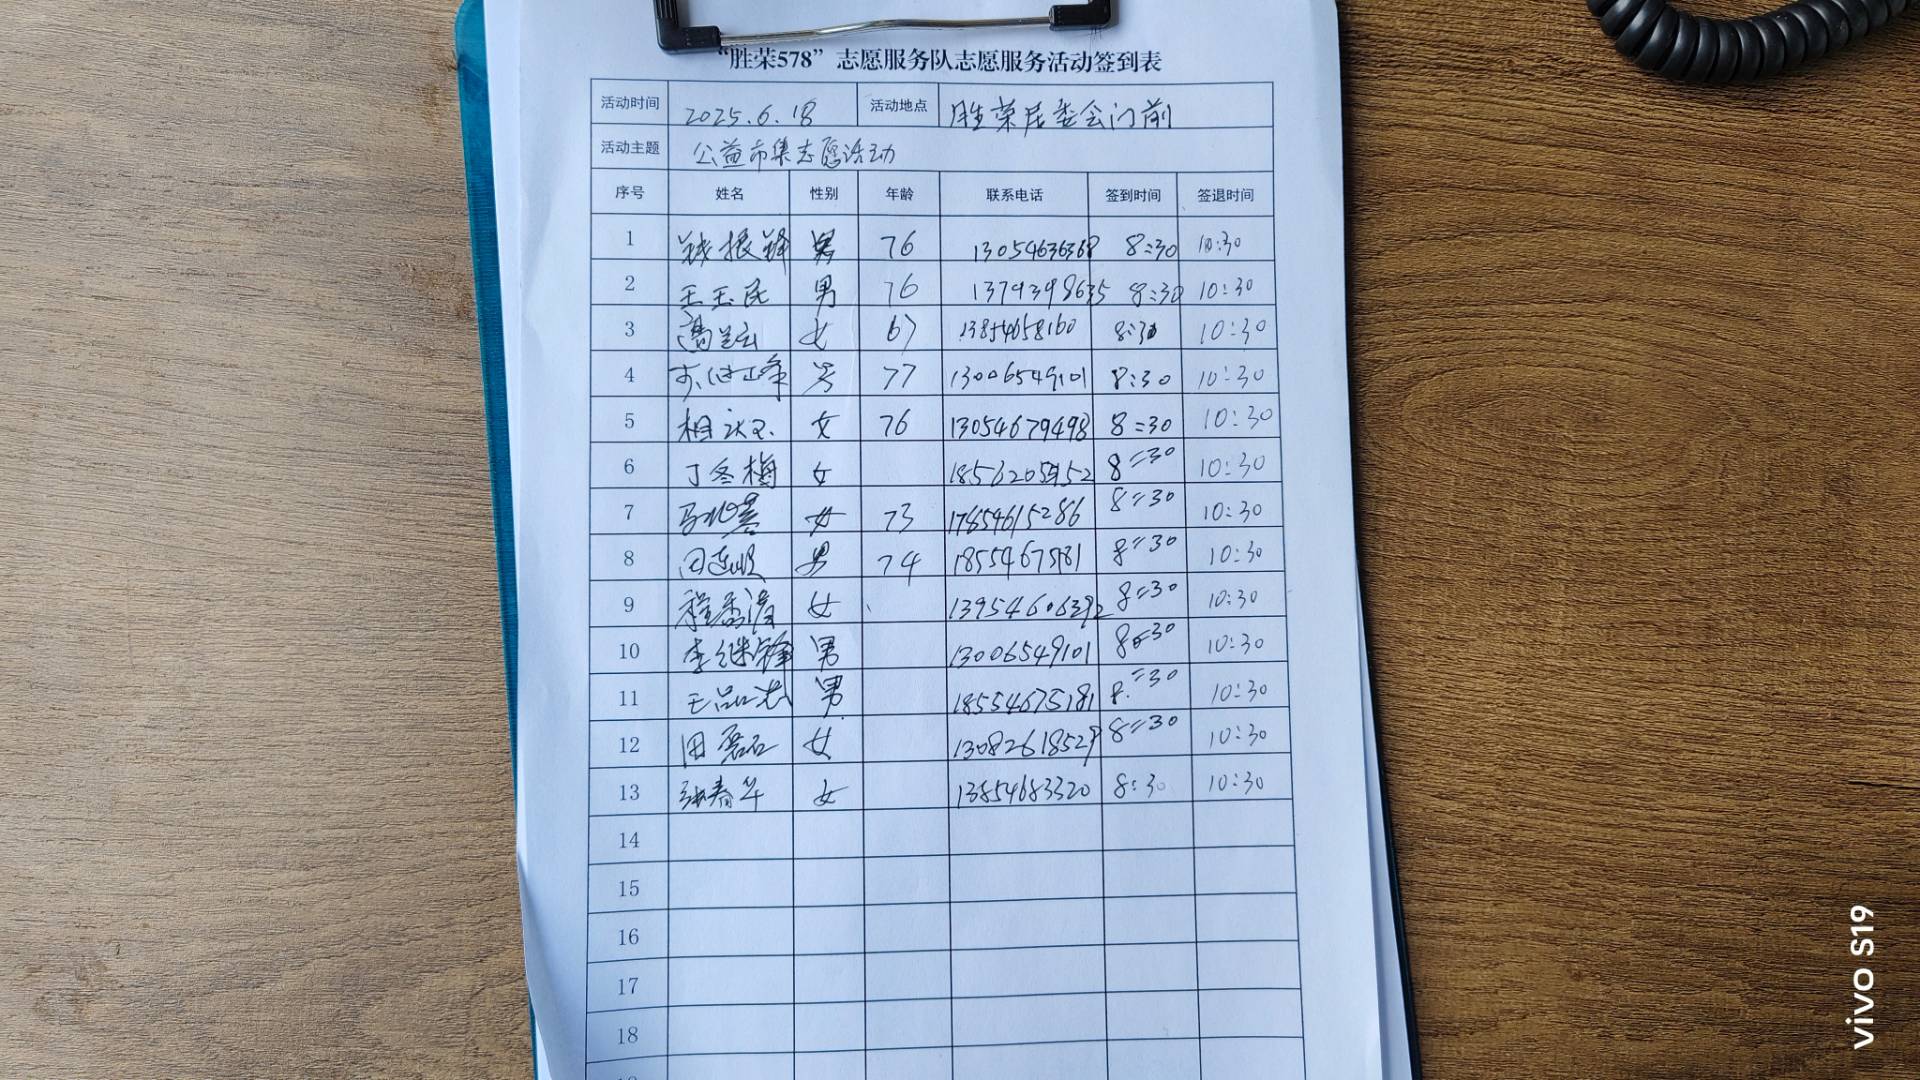 “胜荣578”志愿服务队志愿服务活动签到表
活动时间 2025.6.18 活动地点 胜荣居委会门前
活动主题 公益市集志愿活动
序号 姓名 性别 年龄 联系电话 签到时间 签退时间
1 钱振锋 男 76 13054636368 8:30 10:30
2 王玉民 男 76 13793998635 8:30 10:30
3 女 67 13854658160 8:30 10:30
4 男 77 13006549101 8:30 10:30
5 相 女 76 13054679498 8:30 10:30
6 丁冬梅 女 8:30 10:30
7 女 73 17854615286 8:30 10:30
8 田连顺 男 74 8:30 10:30
9 程秀清 女 13954606392 8:30 10:30
10 李继锋 男 13006549101 8:30 10:30
11 王品志 男 18554675181 8:30 10:30
12 田磊 女 13082618529 8:30 10:30
13 张春华 女 13854683320 8:30 10:30
14
15
16
17
18
vivo S19